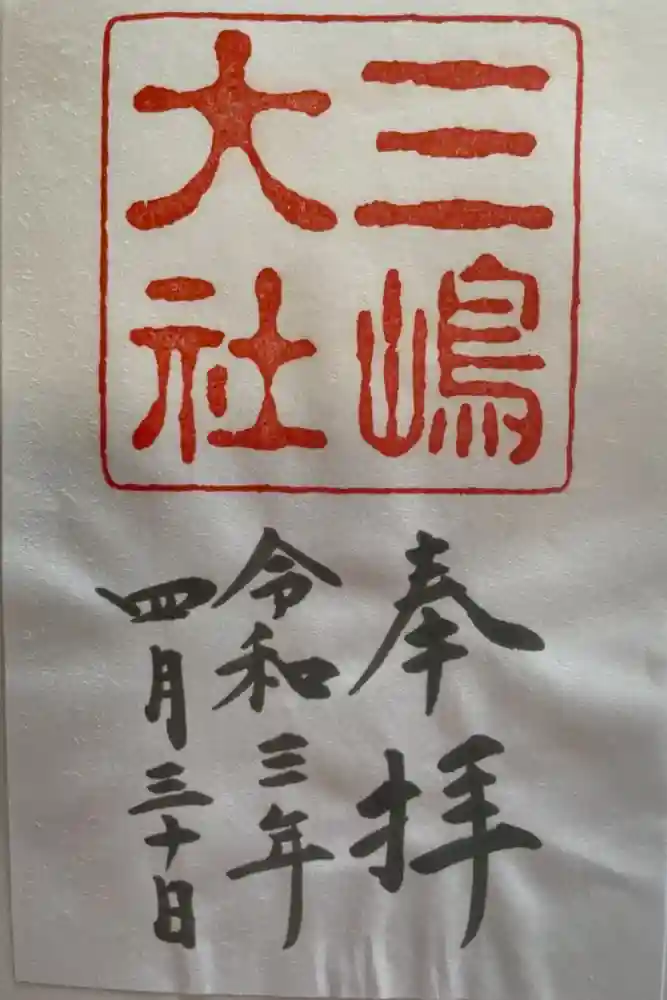 三嶋
大社
奉拝
令和三年
四月三十日